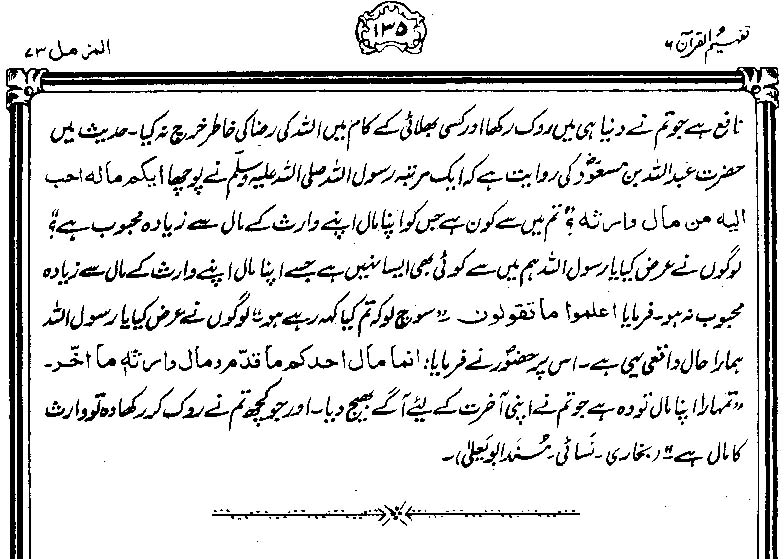 تفہیم القرآن ۶
۱۳۵
المزمل ۷۳
نافع ہے جو تم نے دنیا ہی میں روک رکھا اور کسی بھلائی کے کام میں اللہ کی رضا کی خاطر خرچ نہ کیا۔ حدیث میں
حضرت عبداللہ بن مسعودؓ کی روایت ہے کہ ایک مرتبہ رسول اللہ صلی اللہ علیہ وسلم نے پوچھا ایکم مالہ احب
الیہ من مال وارثہ ؟ "تم میں سے کون ہے جس کو اپنا مال اپنے وارث کے مال سے زیادہ محبوب ہے؟"
لوگوں نے عرض کیا یا رسول اللہ ہم میں سے کوئی بھی ایسا نہیں ہے جسے اپنا مال اپنے وارث کے مال سے زیادہ
محبوب نہ ہو۔ فرمایا اعلموا ما تقولون "سوچ لو کہ تم کیا کہہ رہے ہو" لوگوں نے عرض کیا یا رسول اللہ
ہمارا حال واقعی یہی ہے۔ اس پر حضورؐ نے فرمایا: انما مال احدکم ما قدّم و مال وارثہ ما اخّر۔
"تمہارا اپنا مال تو وہ ہے جو تم نے اپنی آخرت کے لیئے آگے بھیج دیا۔ اور جو کچھ تم نے روک کر رکھا وہ تو وارث
کا مال ہے" (بخاری۔ نَسائی۔ مُسند ابو یَعلیٰ)۔